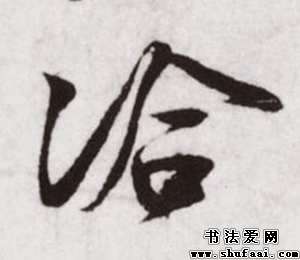 洽
书法爱网
www.shufaai.com